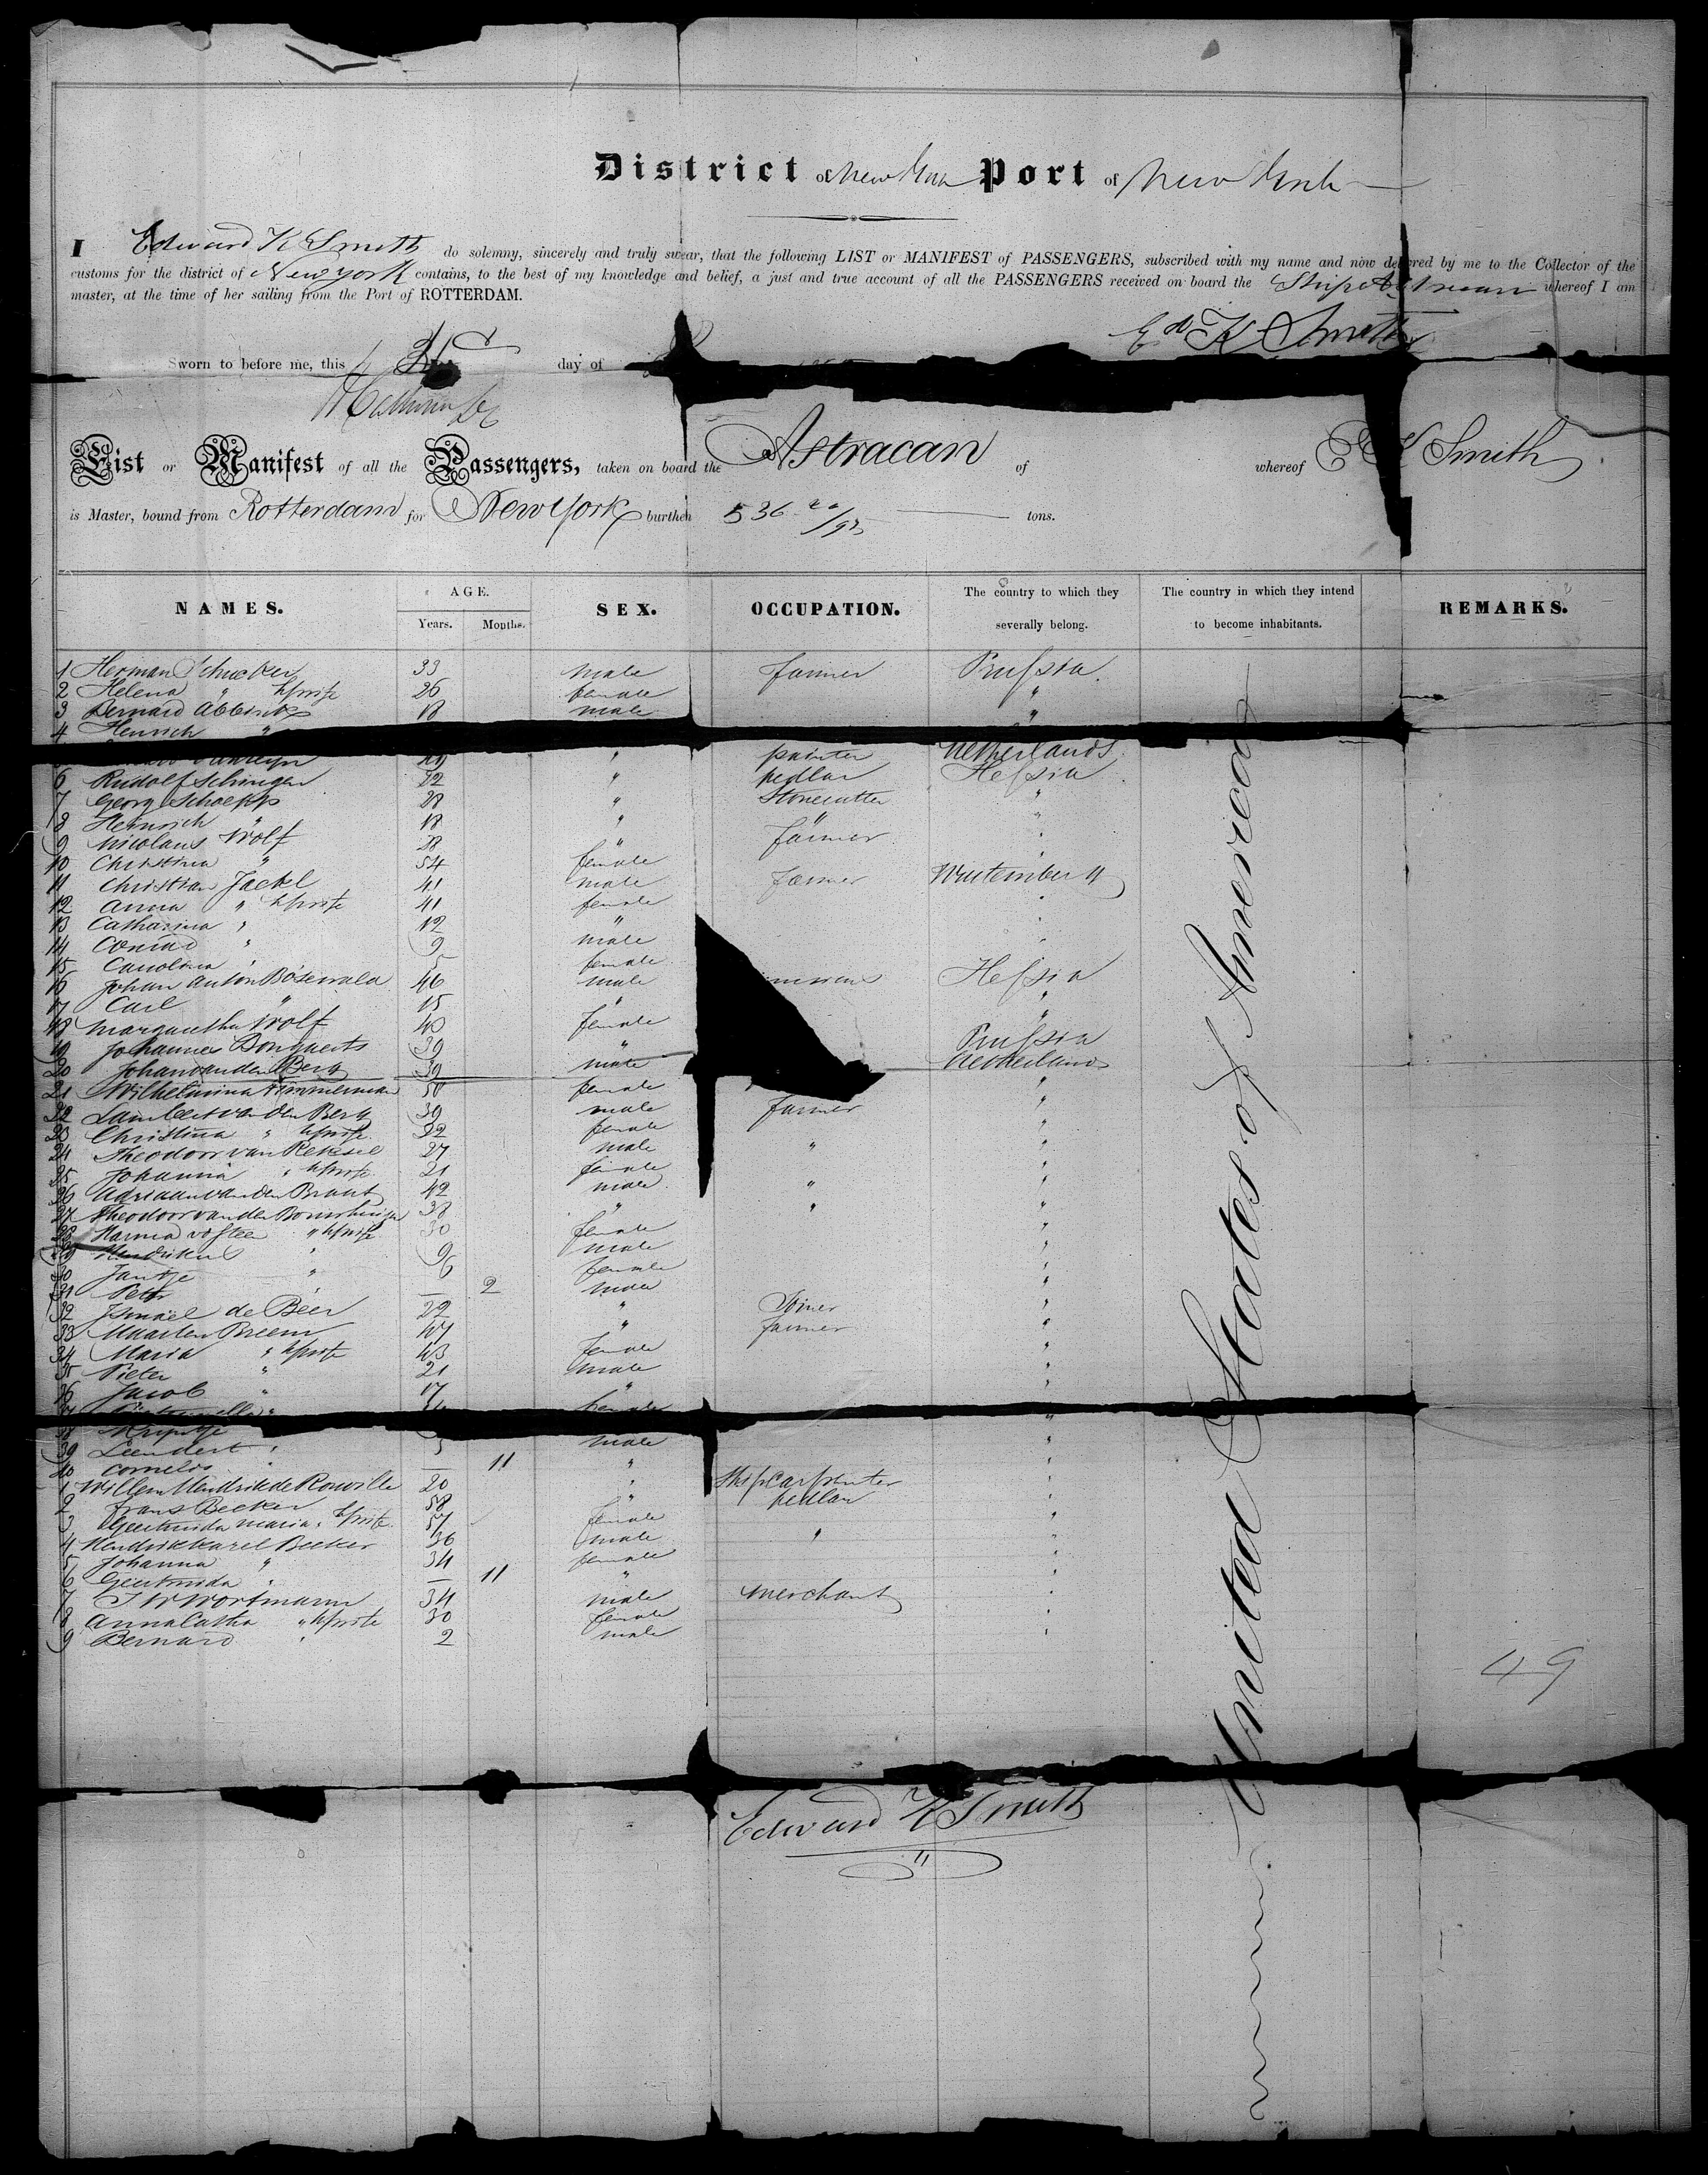 District of New York Port of New York
I Edward K Smith do solemny, sincerely and truly swear, that the following LIST or MANIFEST of PASSENGERS, subscribed with my name and now delivered by me to the Collector of the
customs for the district of New york contains, to the best of my knowledge and belief, a just and true account of all the PASSENGERS received on board the Ship Astracan whereof I am
master, at the time of her sailing from the Port of ROTTERDAM.
Ed K Smith
Sworn to before me, this day of
List or Manifest of all the Passengers, taken on board the Astracan of whereof E K Smith
is Master, bound from Rotterdam for New York burthen 536 /95 tons.
NAMES. AGE. SEX. OCCUPATION. The country to which they severally belong. The country in which they intend to become inhabitants. REMARKS.
Years. Months.
United States of America
1 Herman 33 male farmer Prussia
2 Helena " wife 26 female "
3 Bernard Abbink 18 male "
4 Henrich "
painter Netherlands
6 Rudolf Schingen 22 " pedlar Hessia
7 Georg Schaepp 28 " Stonecutter "
8 Heinrich " 18 " " "
9 Nicolaus Wolf 28 " farmer "
10 Christina " 54 female "
11 Christian Jackel 41 male farmer Wurtemberg
12 Anna " wife 41 female "
13 Catharina " 12 " "
14 Conrad " 9 male "
15 Carolina " 5 female
16 Johan Anton Bösewald 46 male Hessia
17 Carl " 15 " "
18 Margaretha Wolf 40 female "
19 Johannes Bongaerts 39 " Prussia
20 Johan van den Berg 39 male Netherlands
21 Wilhelmina Timmerman 50 female "
22 Lambert van den Berg 39 male farmer "
23 Christina " wife 32 female "
24 Theodoor van 27 male " "
25 Johanna " wife 21 female "
26 Adriaan van den Brant 42 male " "
27 Theodoor van den 38 " " "
28 Hanna " wife 30 female "
29 Hendrikus " 9 male "
30 Jantje " 6 female "
31 Peter — 2 male "
32 Ismael de Beer 22 " Joiner "
33 Maarten Breem 47 " farmer "
34 Maria " wife 43 female "
35 Pieter " 21 male "
36 Jacob " 17 " "
female
38
39 Leendert " 5 male "
40 Cornelis " — 11 " "
1 Willem Hendrik de Rouville 20 " Shipcarpenter "
2 Frans Becker 58 " pedlar "
3 Geertruida Maria " wife 57 female "
4 Hendrik Karel Becker 36 male " "
5 Johanna " 34 female "
6 Geertruida " — 11 " "
7 J W Wortmann 34 male merchant "
8 Anna Catha " wife 30 female "
9 Bernard " 2 male "
49
Edward K Smith